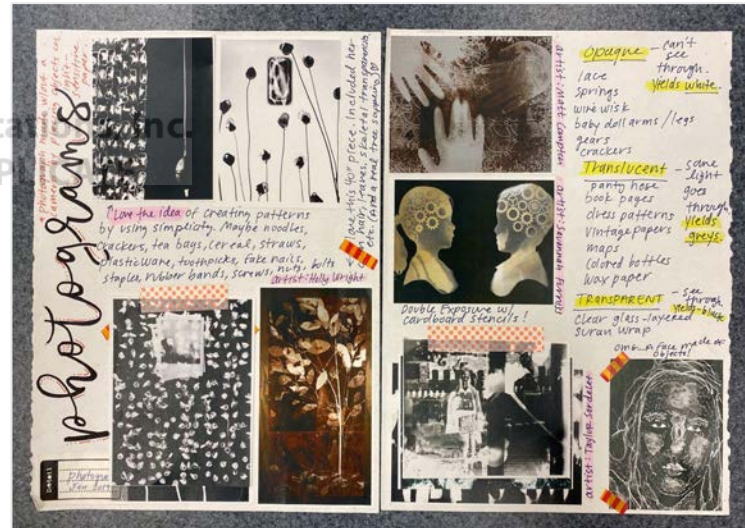 photograms
*Photograph made w/out a
camera by placing objects on
light-sensitive
paper
I love the idea of creating patterns
by using simplicity. Maybe noodles,
crackers, tea bags, cereal, straws,
plastic ware, toothpicks, fake nails,
staples, rubber bands, screws, nuts, bolts
artist: Holly Wright
love this 4 or piece. Included her
own hair, leaves, skeletal transparencies,
etc. (And a real tree sapping)
Detail
artist: Matt
artist: Savannah
Double Exposure w/
cardboard stencils!
artist: Taylor
Opaque - can't
see
through.
yields white.
lace
springs
wire wisk
baby doll arms/legs
gears
crackers
Translucent - some
light
goes
through
yields
greys.
panty hose
book pages
dress patterns
vintage papers
maps
colored bottles
wax paper
TRANSPARENT - see
through
yields-black
Clear glass-layered
suran wrap
omg...a face made of
objects!